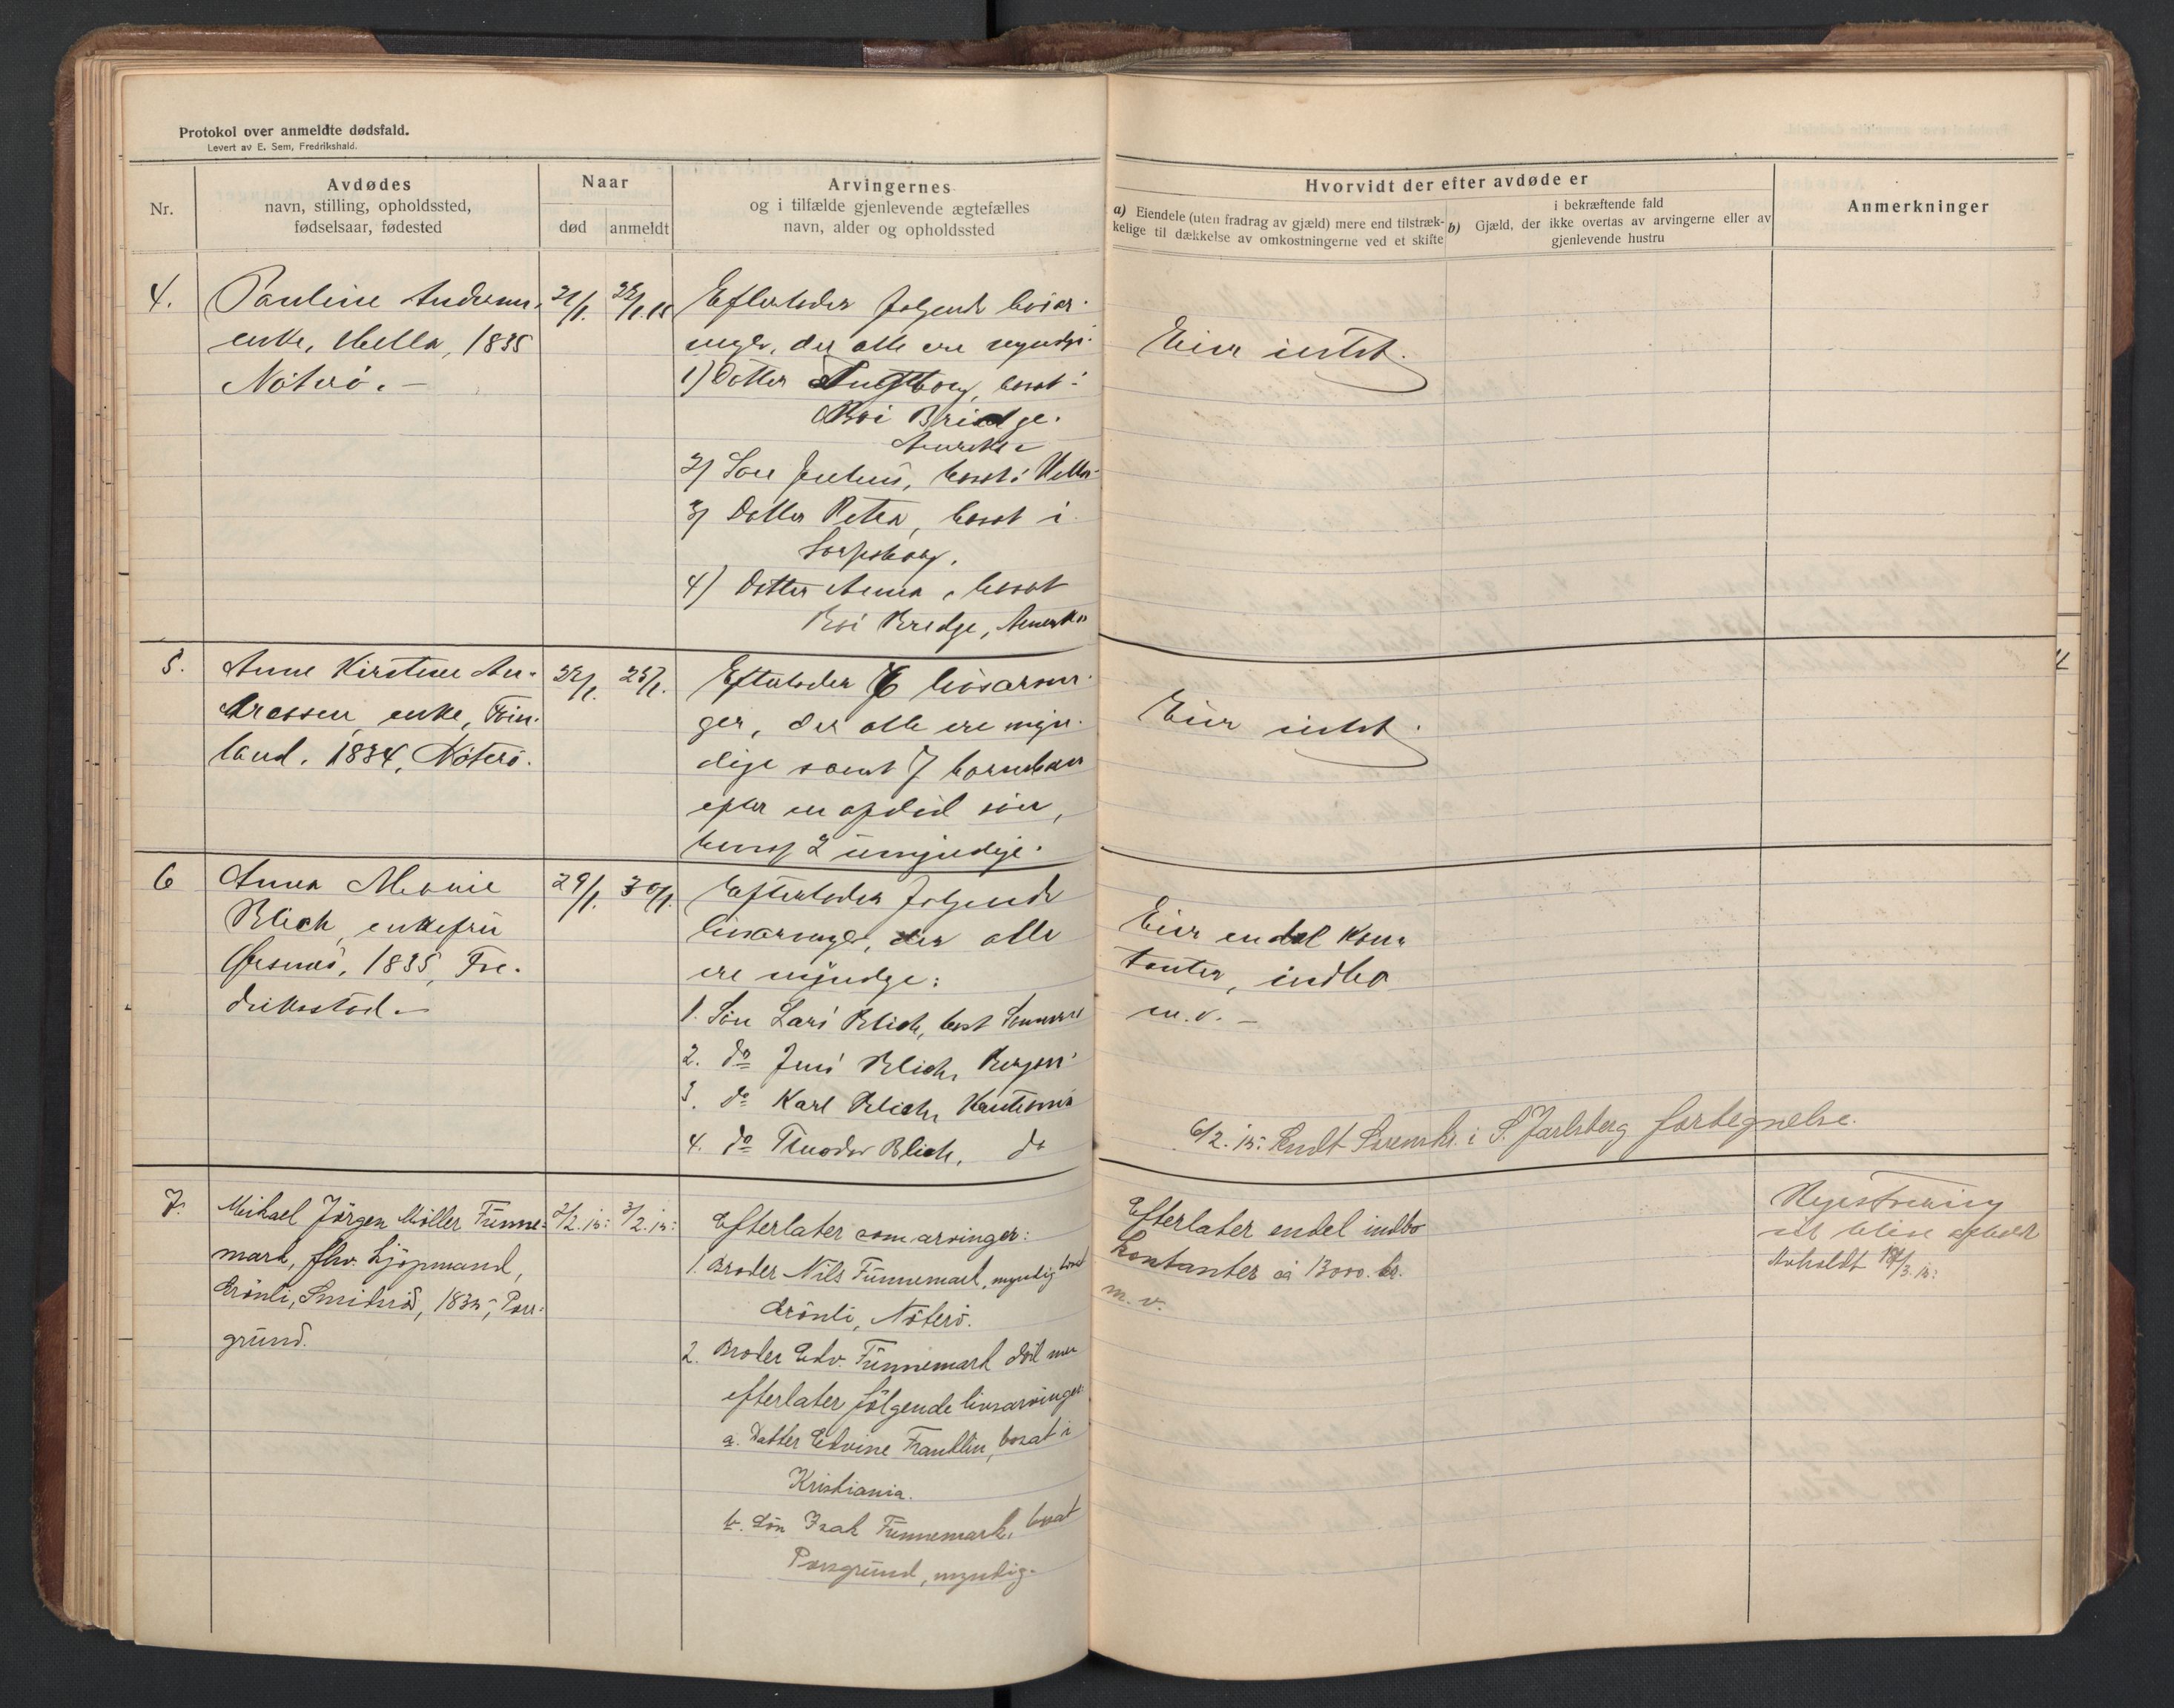 Protokol over anmeldte dødsfald.
Levert av E. Sem, Fredrikshald.
Nr.
Avdødes
navn, stilling, opholdssted,
fødselsaar, fødested
Naar
død
anmeldt
Arvingernes
og i tilfælde gjenlevende ægtefælles
navn, alder og opholdssted
Hvorvidt der efter avdøde er
a) Eiendele (uten fradrag av gjæld) mere end tilstræk-
kelige til dækkelse av omkostningerne ved et skifte
i bekræftende fald
b) Gjæld, der ikke overtas av arvingerne eller av
gjenlevende hustru
Anmerkninger
4.
Pauline Andersen,
enke, Hella, 1835
Nøterø. -
21/1.
22/1.15
Efterlader følgende livsar-
inger, der alle ere myndige.
1) Datter bosat i
Roi Bridge.
Amerika
2) Søn Julius, bosat i Hella
3) Datter Petra, bosat i
Sarpsborg.
4) Datter Anna, bosat
Roi Bredge, Amerika
Eier intet.
5.
Anne Kirstine An-
dressen, enke, Føin-
land. 1834, Nøterø.
22/1.
25/1.
Efterlader 6 livsarvin-
ger, der alle ere myn-
dige samt 7 barnebarn
efter en afdød søn,
hvoraf 2 umyndige.
Eier intet.
6
Anna Marie
Blich, enkefru
1835, Fre-
drikstad. -
29/1.
30/1.
Efterlader følgende
livsarvinger, der alle
ere myndige:
1. Søn Lars Blich, bosat
2. do Jens Blich, Bergen
3. do Karl Blich, Kristiania
4. do Theodor Blich, do
Eier endel kon-
tanter, indbo
m.v. -
6/2.15: Sendt i S. Jarlsberg fortegnelse.
7.
Mikael Jörgen Möller Funne-
mark, fhv. kjöpmand,
Grönli, Smidsrød, 1835, Pors-
grund.
2/2.15:
3/2.15:
Efterlater som arvinger:
1. Broder Nils Funnemark, myndig bosat
Grönli, Nöterö.
2. Broder Edv. Funnemark död men
efterlater fölgende livsarvinger:
a. Datter Edvine Franklin, bosat i
Kristiania.
b. Sön Isak Funnemark, bosat
Porsgrund, myndig.
Efterlater endel indbo
kontanter ca 13000. kr.
m. v.
Registrering
vil blive
Avholdt 18/3.15: